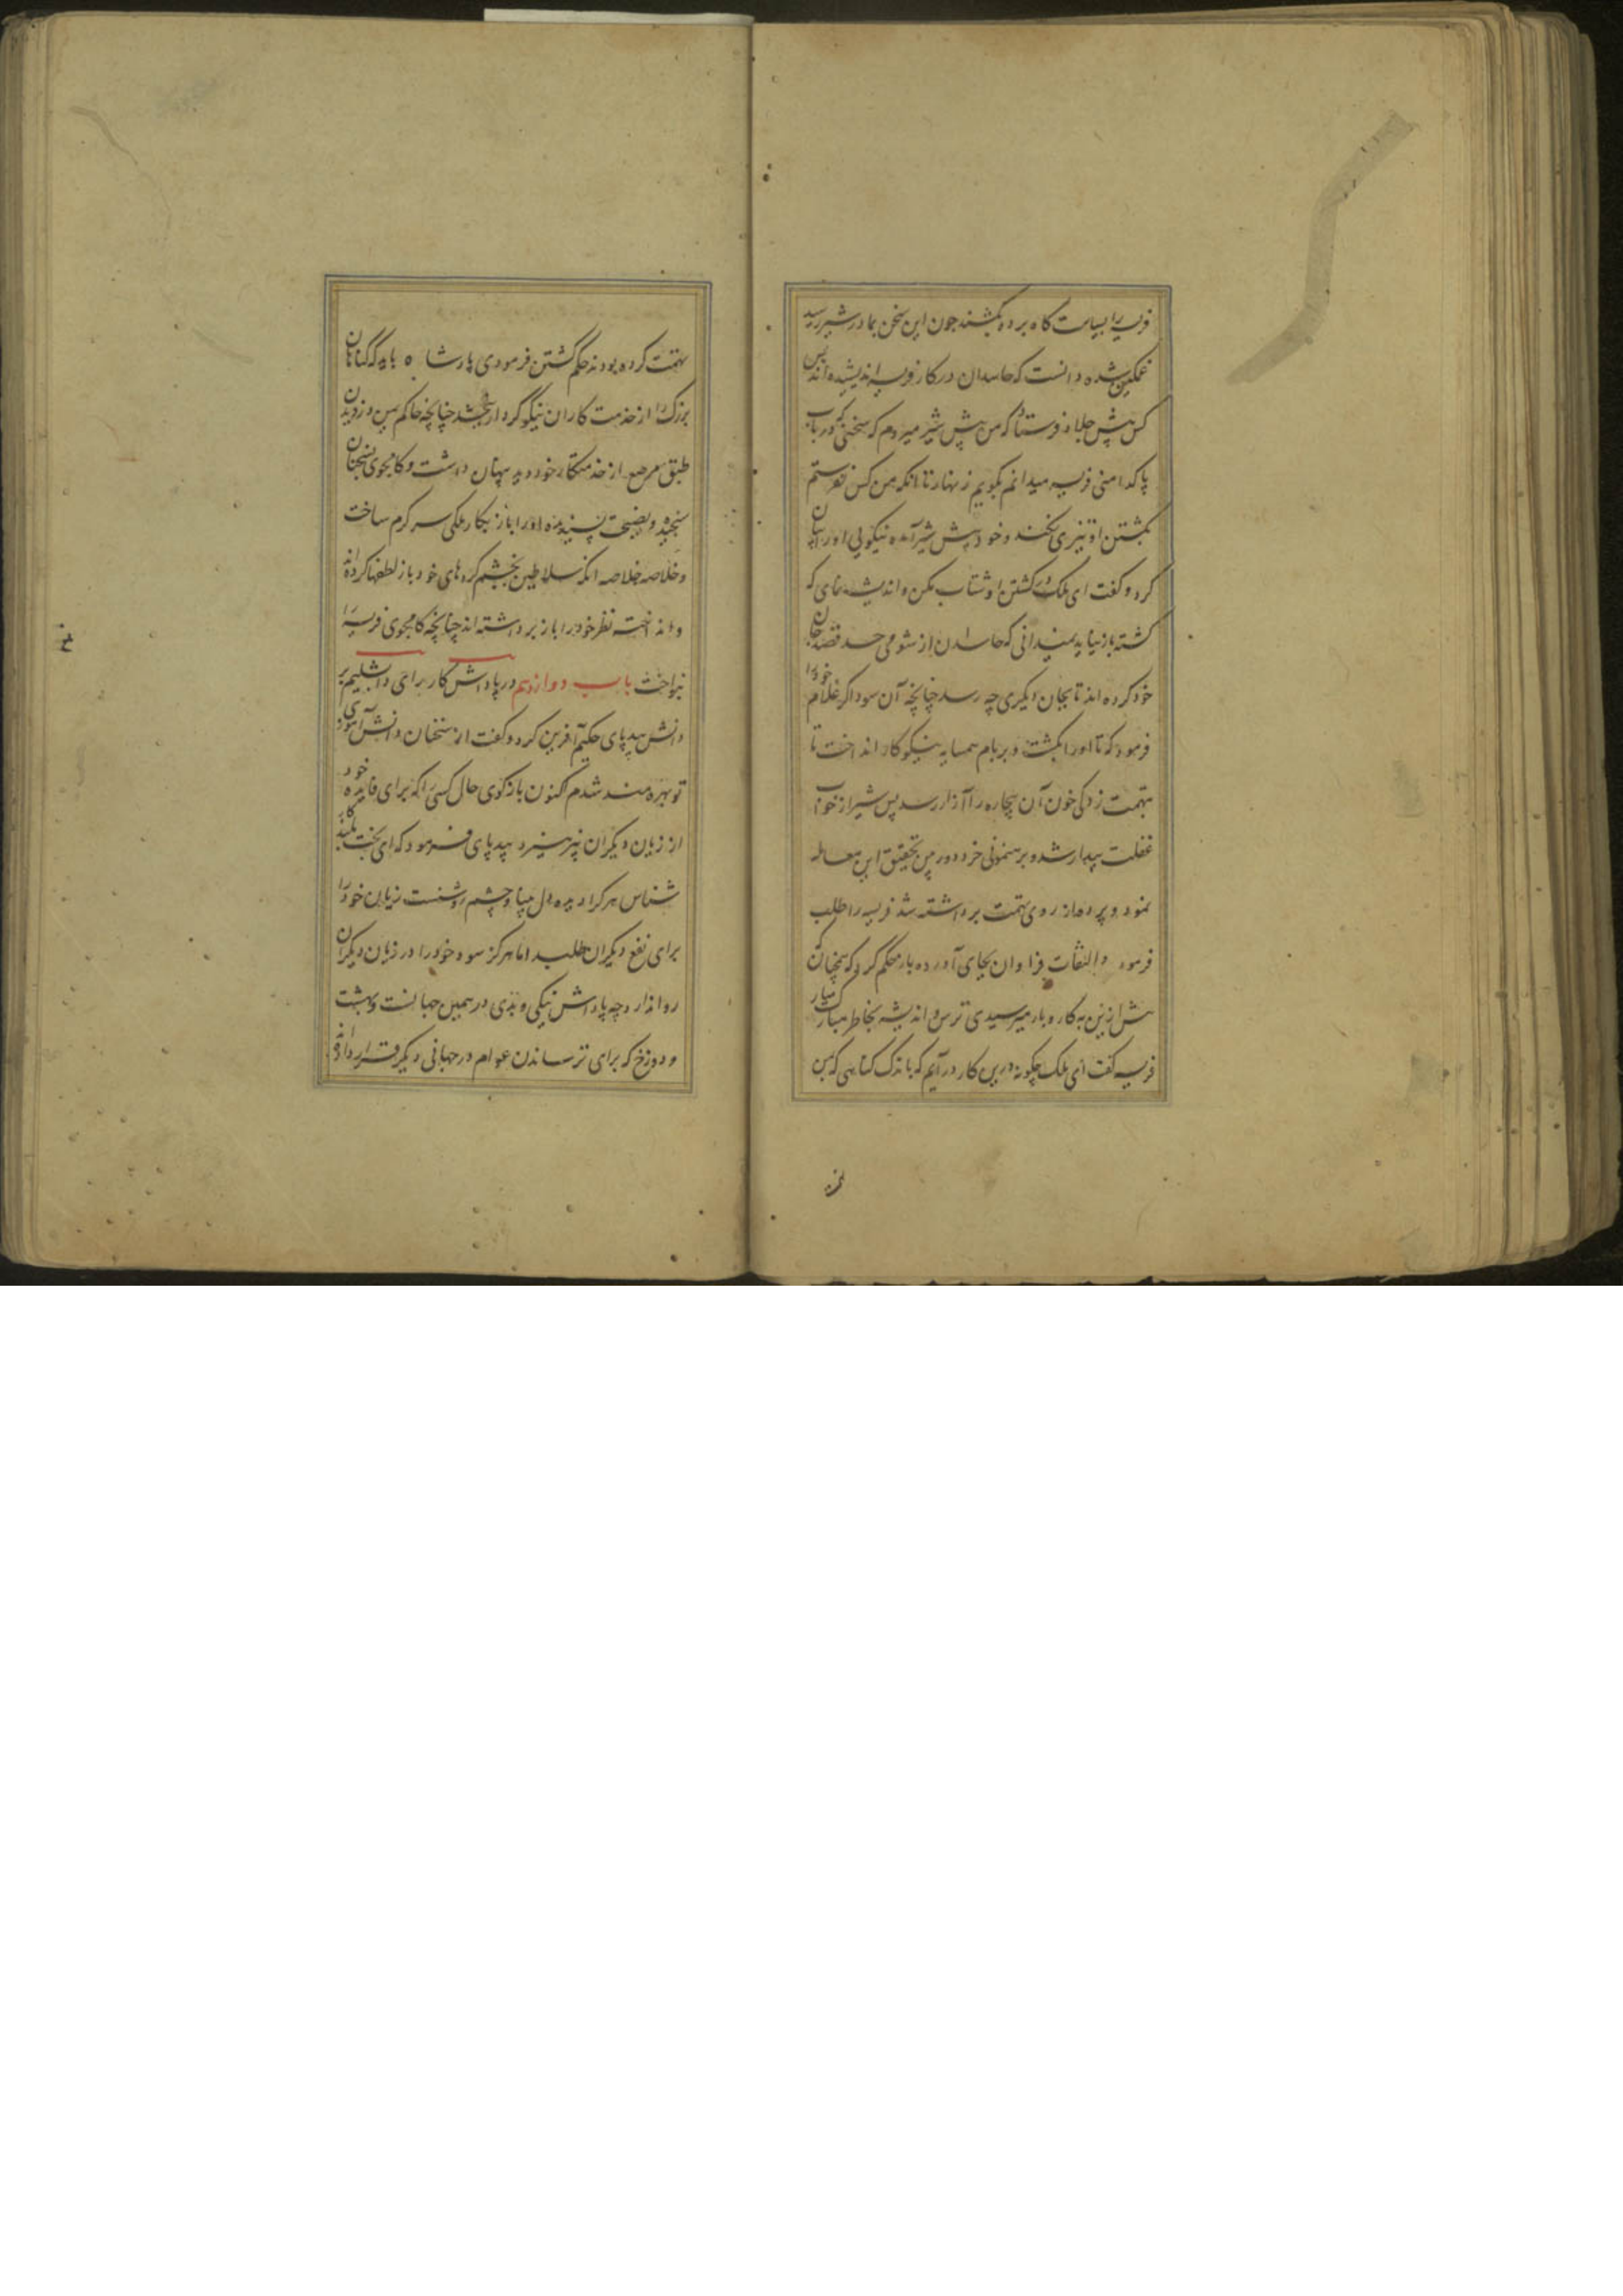 فریسه را بسیاست گاه برده بکشند چون این سخن بمادر شیر رسید
غمگین شده دانست که حاسدان در کار فریسه اندیشیده اند پس
کس پیش جلاد فرستاد که من پیش شیر میروم که سخنی که در باب
پاکدامنی فریسه میدانم بگویم زنهار تا آنکه من کس نفرستم
بکشتن او تیزی نکنند و خود پیش شیر آمده نیکویی او را بیان
کرد و گفت ای ملک در کشتن او شتاب مکن و اندیشه نمای که
کشته باز نیاید نمیدانی که حاسدان از شومی حسد قصد جان
خود کرده اند تا بجان دیگری چه رسد چنانچه آن سوداگر غلام خود را
فرمود که تا او را بکشت و بر بام همسایه نیکوکار انداخت تا
بتهمت زدگی خون آن بیچاره را آزار رسد پس شیر از خواب
غفلت بیدار شد و برهنمونی خرد دوربین تحقیق این معامله
نمود و پرده از روی تهمت برداشته شد فریسه را طلب
فرمود و التفات فراوان بجای آورده باز حکم کرد که همچنان
پیش ازین به کار و بار میرسیدی ترس و اندیشه بخاطر مبارک میار
فریسه گفت ای ملک چگونه درین کار در آیم که باندک گناهی که بمن
تهمت کرده بودند حکم کشتن فرمودی پادشاه باید که گناهان
بزرگ را از خدمت کاران نیکو کردار ببخشد چنانچه حاکم یمن دزدیدن
طبق مرصع از خدمتکار خود دید پنهان داشت و کامجوی بسخنان
سنجیده و نصیحت پسندیده او را باز بکار ملکی سرگرم ساخت
و خلاصه خلاصه آنکه سلاطین بخشم کرده های خود باز لطفها کرده اند
و انداخته نظر خود را باز برداشته اند چنانچه کامجوی فریسه را
بنواخت باب دوازدهم در پاداش کار رای دابشلیم بر
دانش بیدپای حکیم آفرین کرد و گفت از سخنان دانش آموز ی
تو بهره مند شدم اکنون بازگوی حال کسی را که برای فایده خود
از زیان دیگران نپرهیزد بیدپای فرمود که ای بخت بلند کار
شناس هر کرا دیده دل بینا و چشم روشنست زیان خود را
برای نفع دیگران طلبد اما هرگز سود خود را در زیان دیگران
روا ندارد چه پاداش نیکی و بدی در همین جهانست و بهشت
و دوزخ که برای ترساندن عوام در جهانی دیگر قرار داده اند